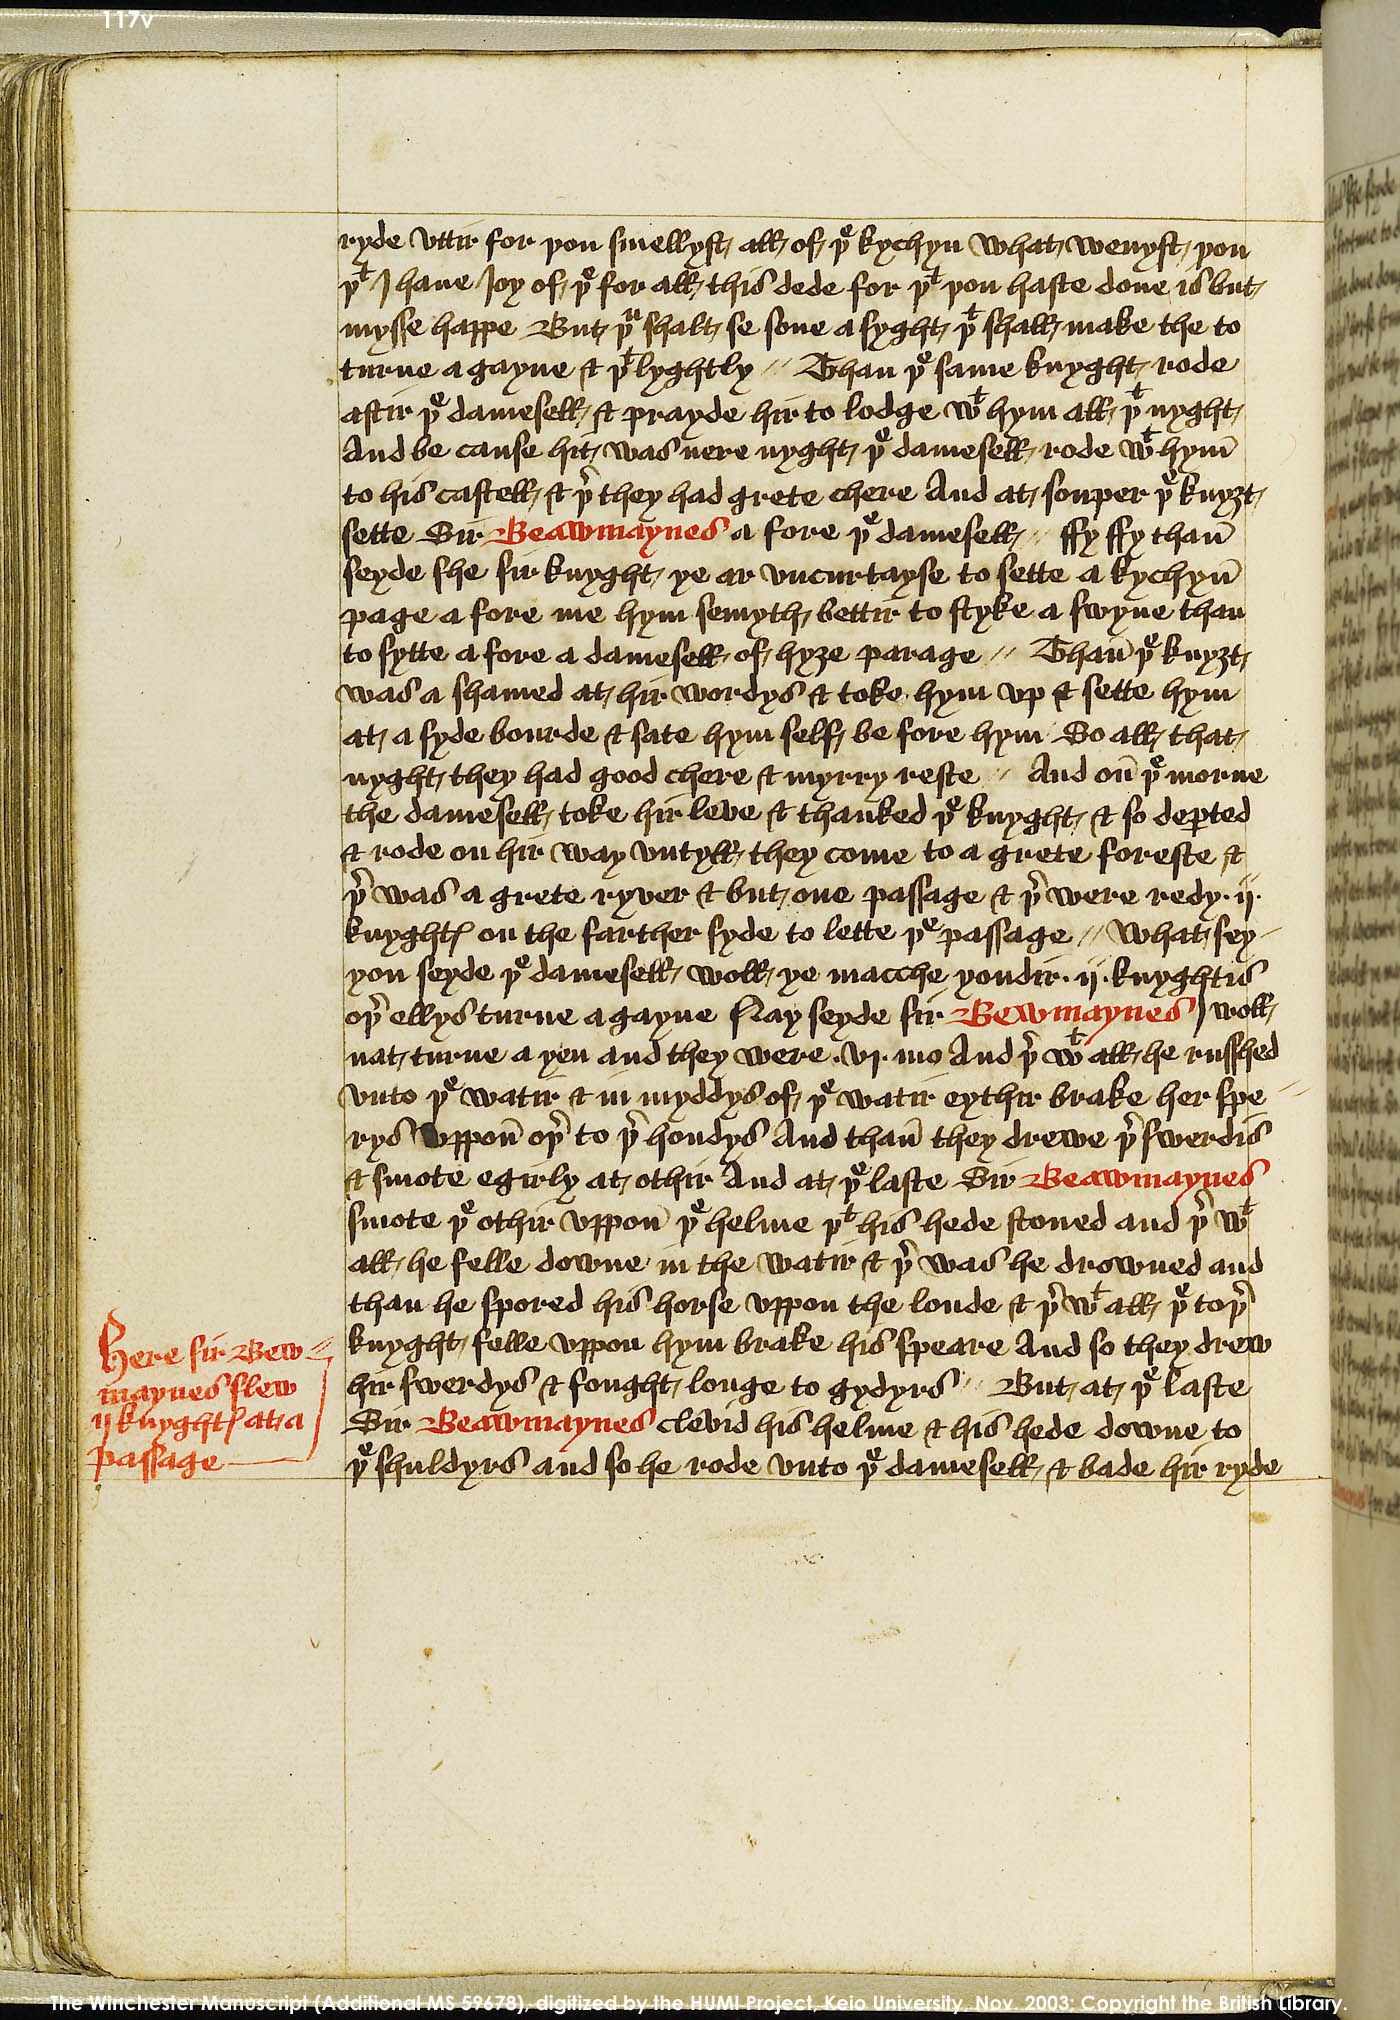 117v
ryde vttir for þou smellyst all of þe kychyn What wenyst þou
þt I haue Ioy of þe for all this dede for þt þou haste done is but
mysse happe But þu shalt se sone a syght þt shall make the to
turne agayne & þt lyghtly // Than þe same knyght rode
aftir þe damesell & prayde hir to lodge wt hym all þt nyght
And be cause hit was nere nyght þe damesell rode wt hym̄
to his castell & þr they had grete chere And at souper þe knyȝt
sette Sir Beawmaynes a fore þe damesell // ffy ffy than̄
seyde she sir knyght ye ar vncurtayse to sette a kychyn̄
page a fore me hym semyth bettir to styke a swyne than
to sytte a fore a damesell of hyȝe parage // Than̄ þe knyȝt
was a shamed at hir wordys & toke hym vp & sette hym
at a syde bourde & sate hym self be fore hym So all that
nyght they had good chere & myrry reste // And on̄ þe morne
the damesell toke hir leve & thanked þe knyght & so deꝑted
& rode on hir way vntyll they come to a grete foreste &
þr was a grete ryver & but one passage & þr were redy .ij.
knyghtꝭ on the farther syde to lette þe passage // What sey-
you seyde þe damesell woll ye macche yondir .ij. knyghtis
oþr ellys turne agayne Nay seyde sir Bewmaynes I woll
nat turne a yen and they were .vj. mo And þr wt all he russhed
vnto þe watir & in myddys of þe watir eythir brake her spe //
rys vppon̄ oþr to þr hondys And than̄ they drewe þr swerdis
& smote egirly at othir And at þe laste Sir Beawmaynes
smote þe othir vppon̄ þe helme þt his hede stoned and þr wt
all he felle downe in the watir & þr was he drowned and
than he spored his horse vppon the londe & þr wt all þe toþr
knyght felle vppon hym brake his speare And so they drew
hir swerdys & fought longe to gydyrs // But at þe laste
Sir Beawmaynes clevid his helme & his hede downe to
þe shuldyrs and so he rode vnto þe damesell & bade hir ryde
Here sir Bew //
maynes slew
ij knyghtꝭ at a
passage
The Winchester Manuscript (Additional MS 59678), digitized by the HUMI Project, Keio University, Nov. 2003; Copyright the British Library.